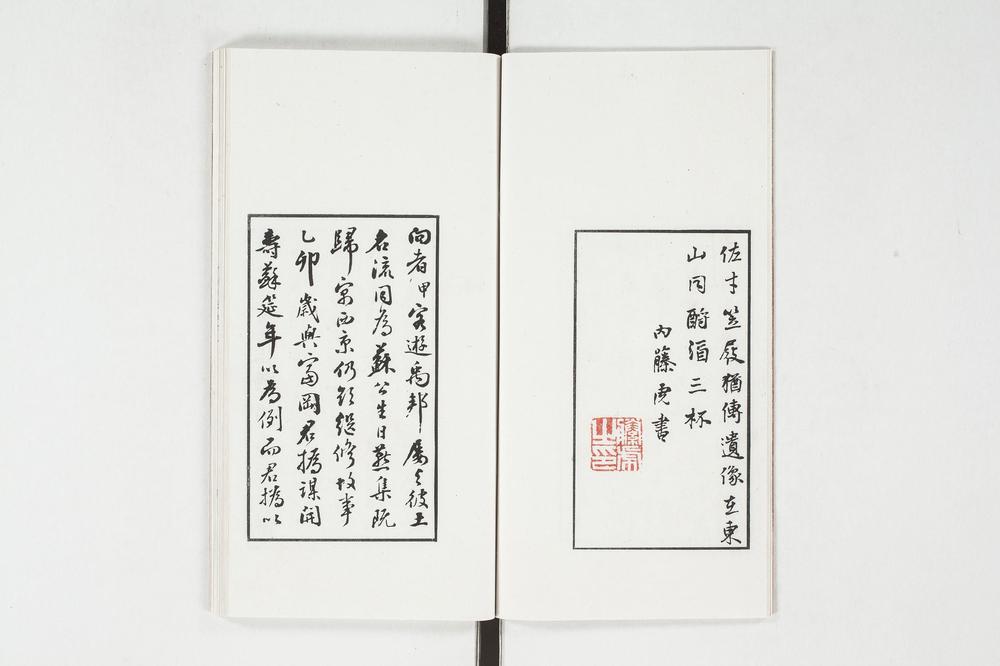 佐才笠屐猶傳遺像在東
山同酹酒三杯
内藤虎書
向者甲客遊禹邦屢與彼土
名流同為蘇公生日燕集既
歸京西京仍欲繼修故事
乙卯歲與富岡君撝謀開
壽蘇筵年以為例而君撝以